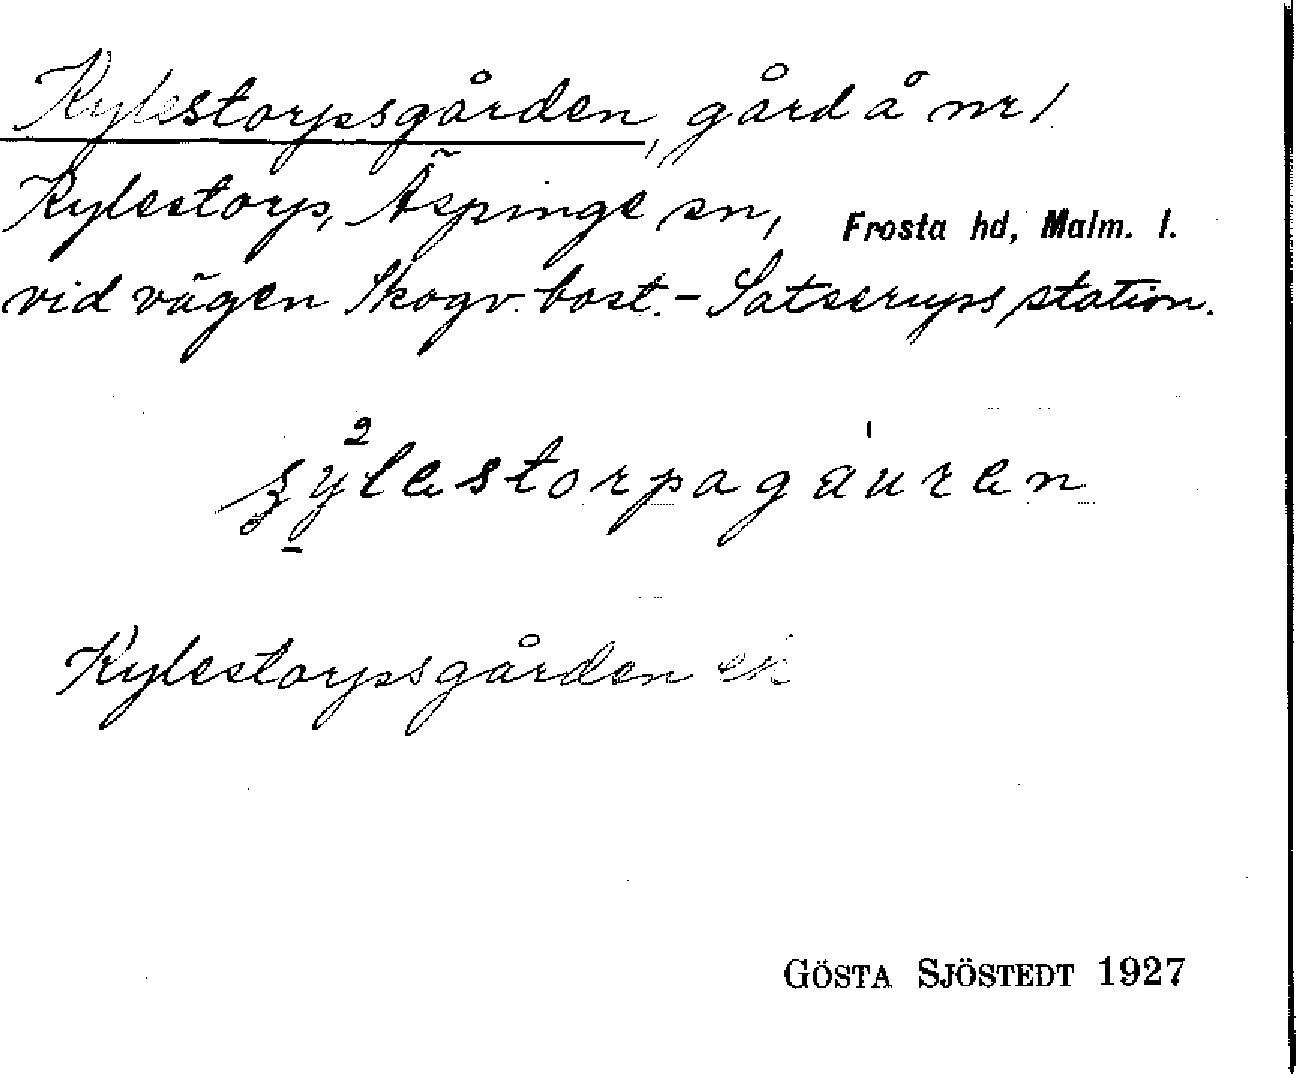 Kylestorpsgården, gård å nr 1
Kylestorp, Äspinge sn, Frosta hd, Malm. l.
vid vägen Skogv. bost. - Satserups station.
Kylestorpsgården ek
GÖSTA SJÖSTEDT 1927